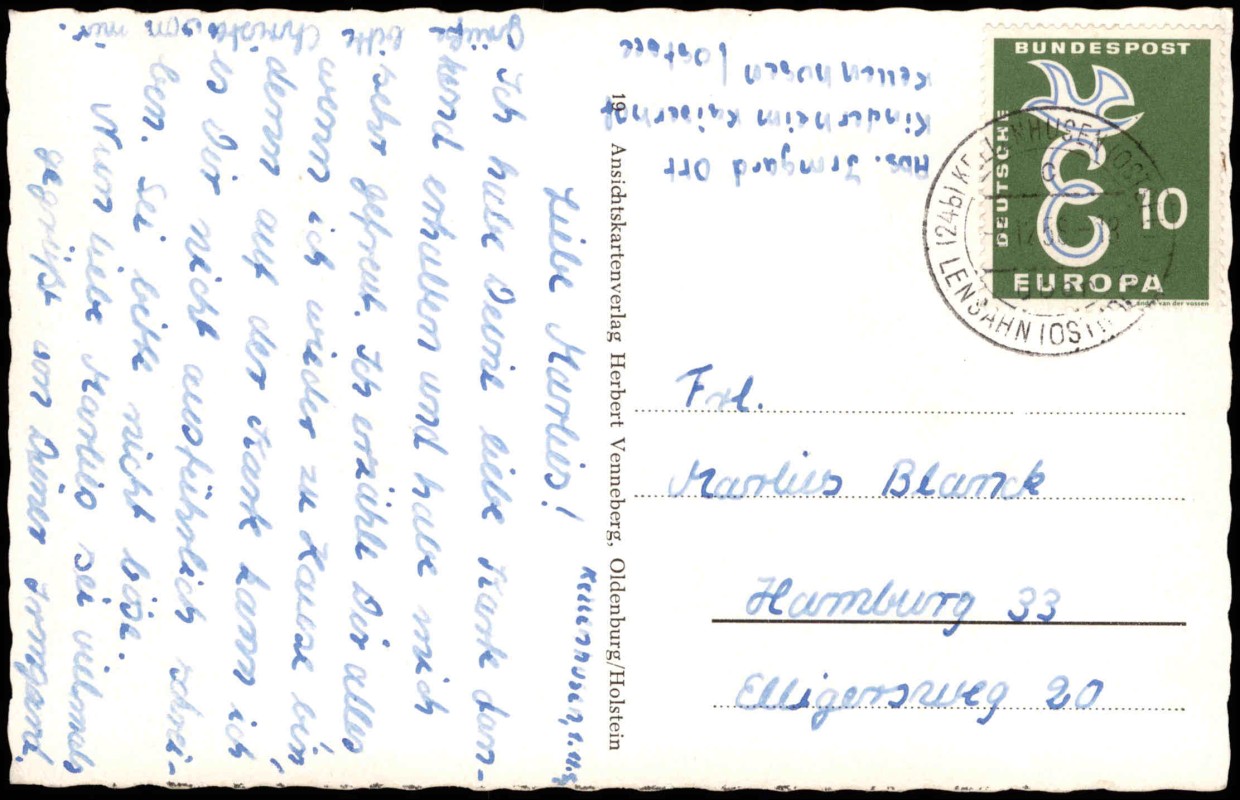 Kellenhusen, 1.11.
Liebe Marlies!
Ich habe Deine liebe Karte dan-
kend erhalten und habe mich
sehr gefreut. Ich erzähle Dir alles
wenn ich wieder zu Hause bin
denn auf der Karte kann ich
es Dir nicht ausführlich schrei-
ben. Sei bitte nicht böse.
Nun liebe Marlies sei vielmals
gegrüßt von Deiner Irmgard.
Grüße bitte
Christa von mir.
19 Ansichtskartenverlag Herbert Venneberg, Oldenburg/Holstein
Abs. Irmgard Ort
Kinderheim Kaiserhof
Kellenhusen/Ostsee
DEUTSCHE
BUNDESPOST
10
EUROPA
andré van der vossen
(24b) KELLENHUSEN (OSTSEE)
c
LENSAHN (OSTHOLST)
Frl.
Marlies Blanck
Hamburg 33
Elligersweg 20